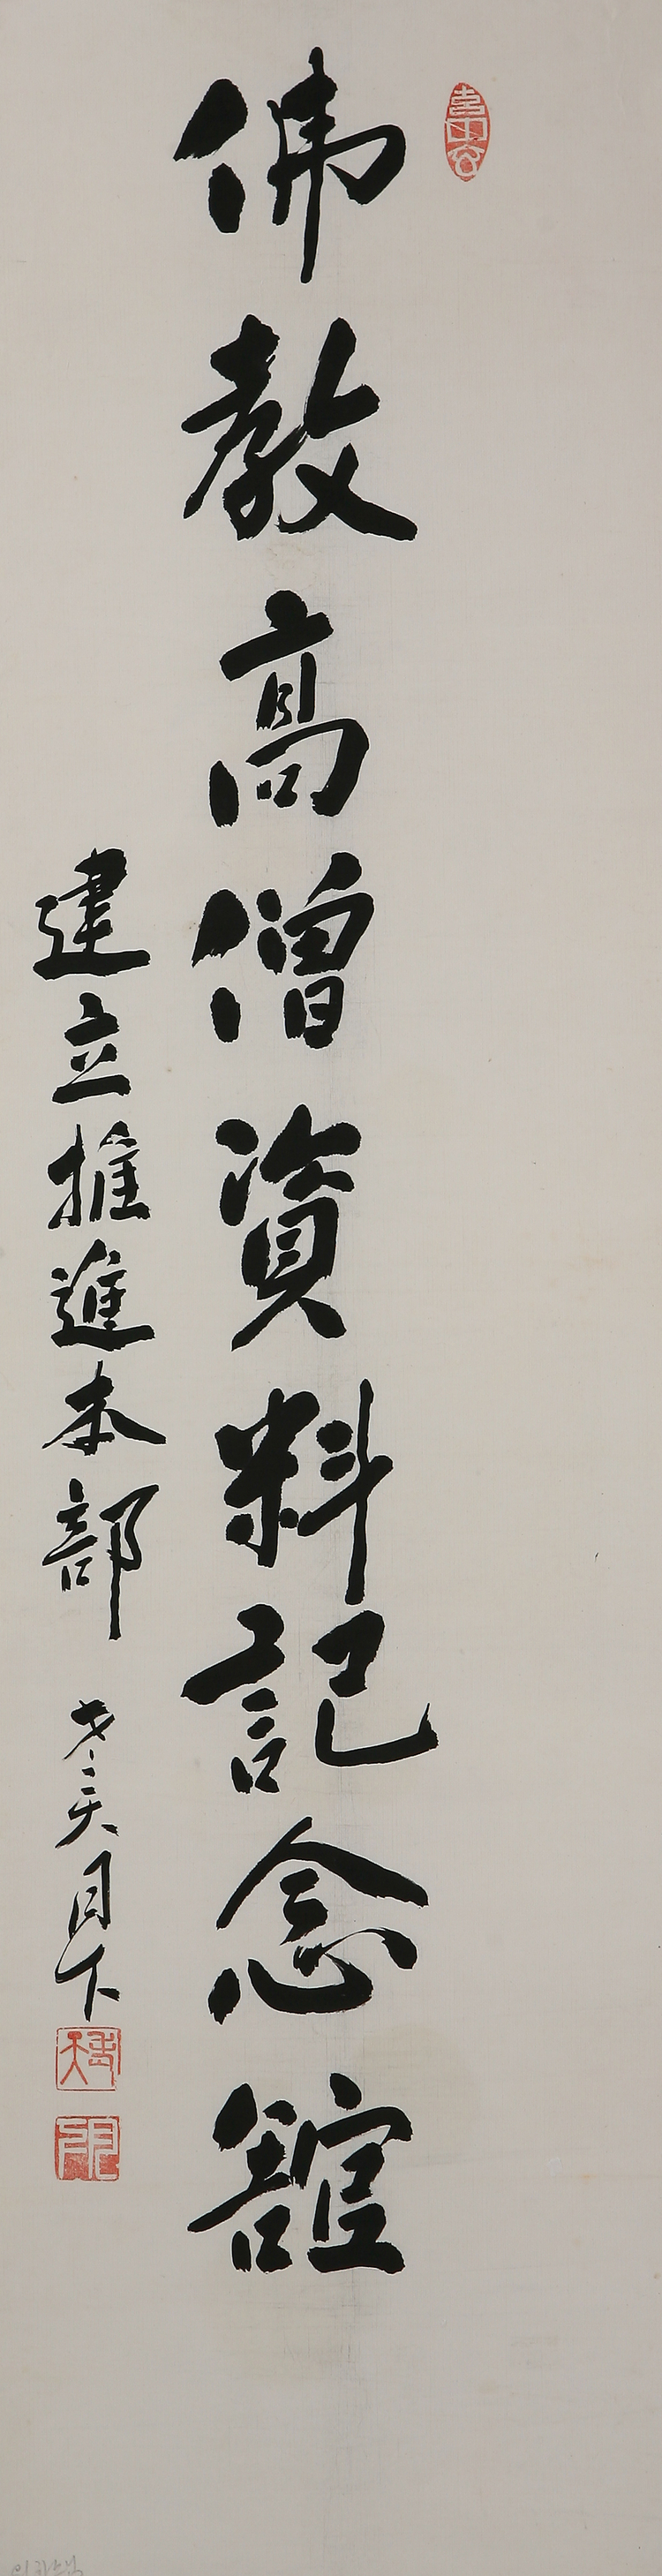 佛教高僧資料記念舘
建立推進本部
月下